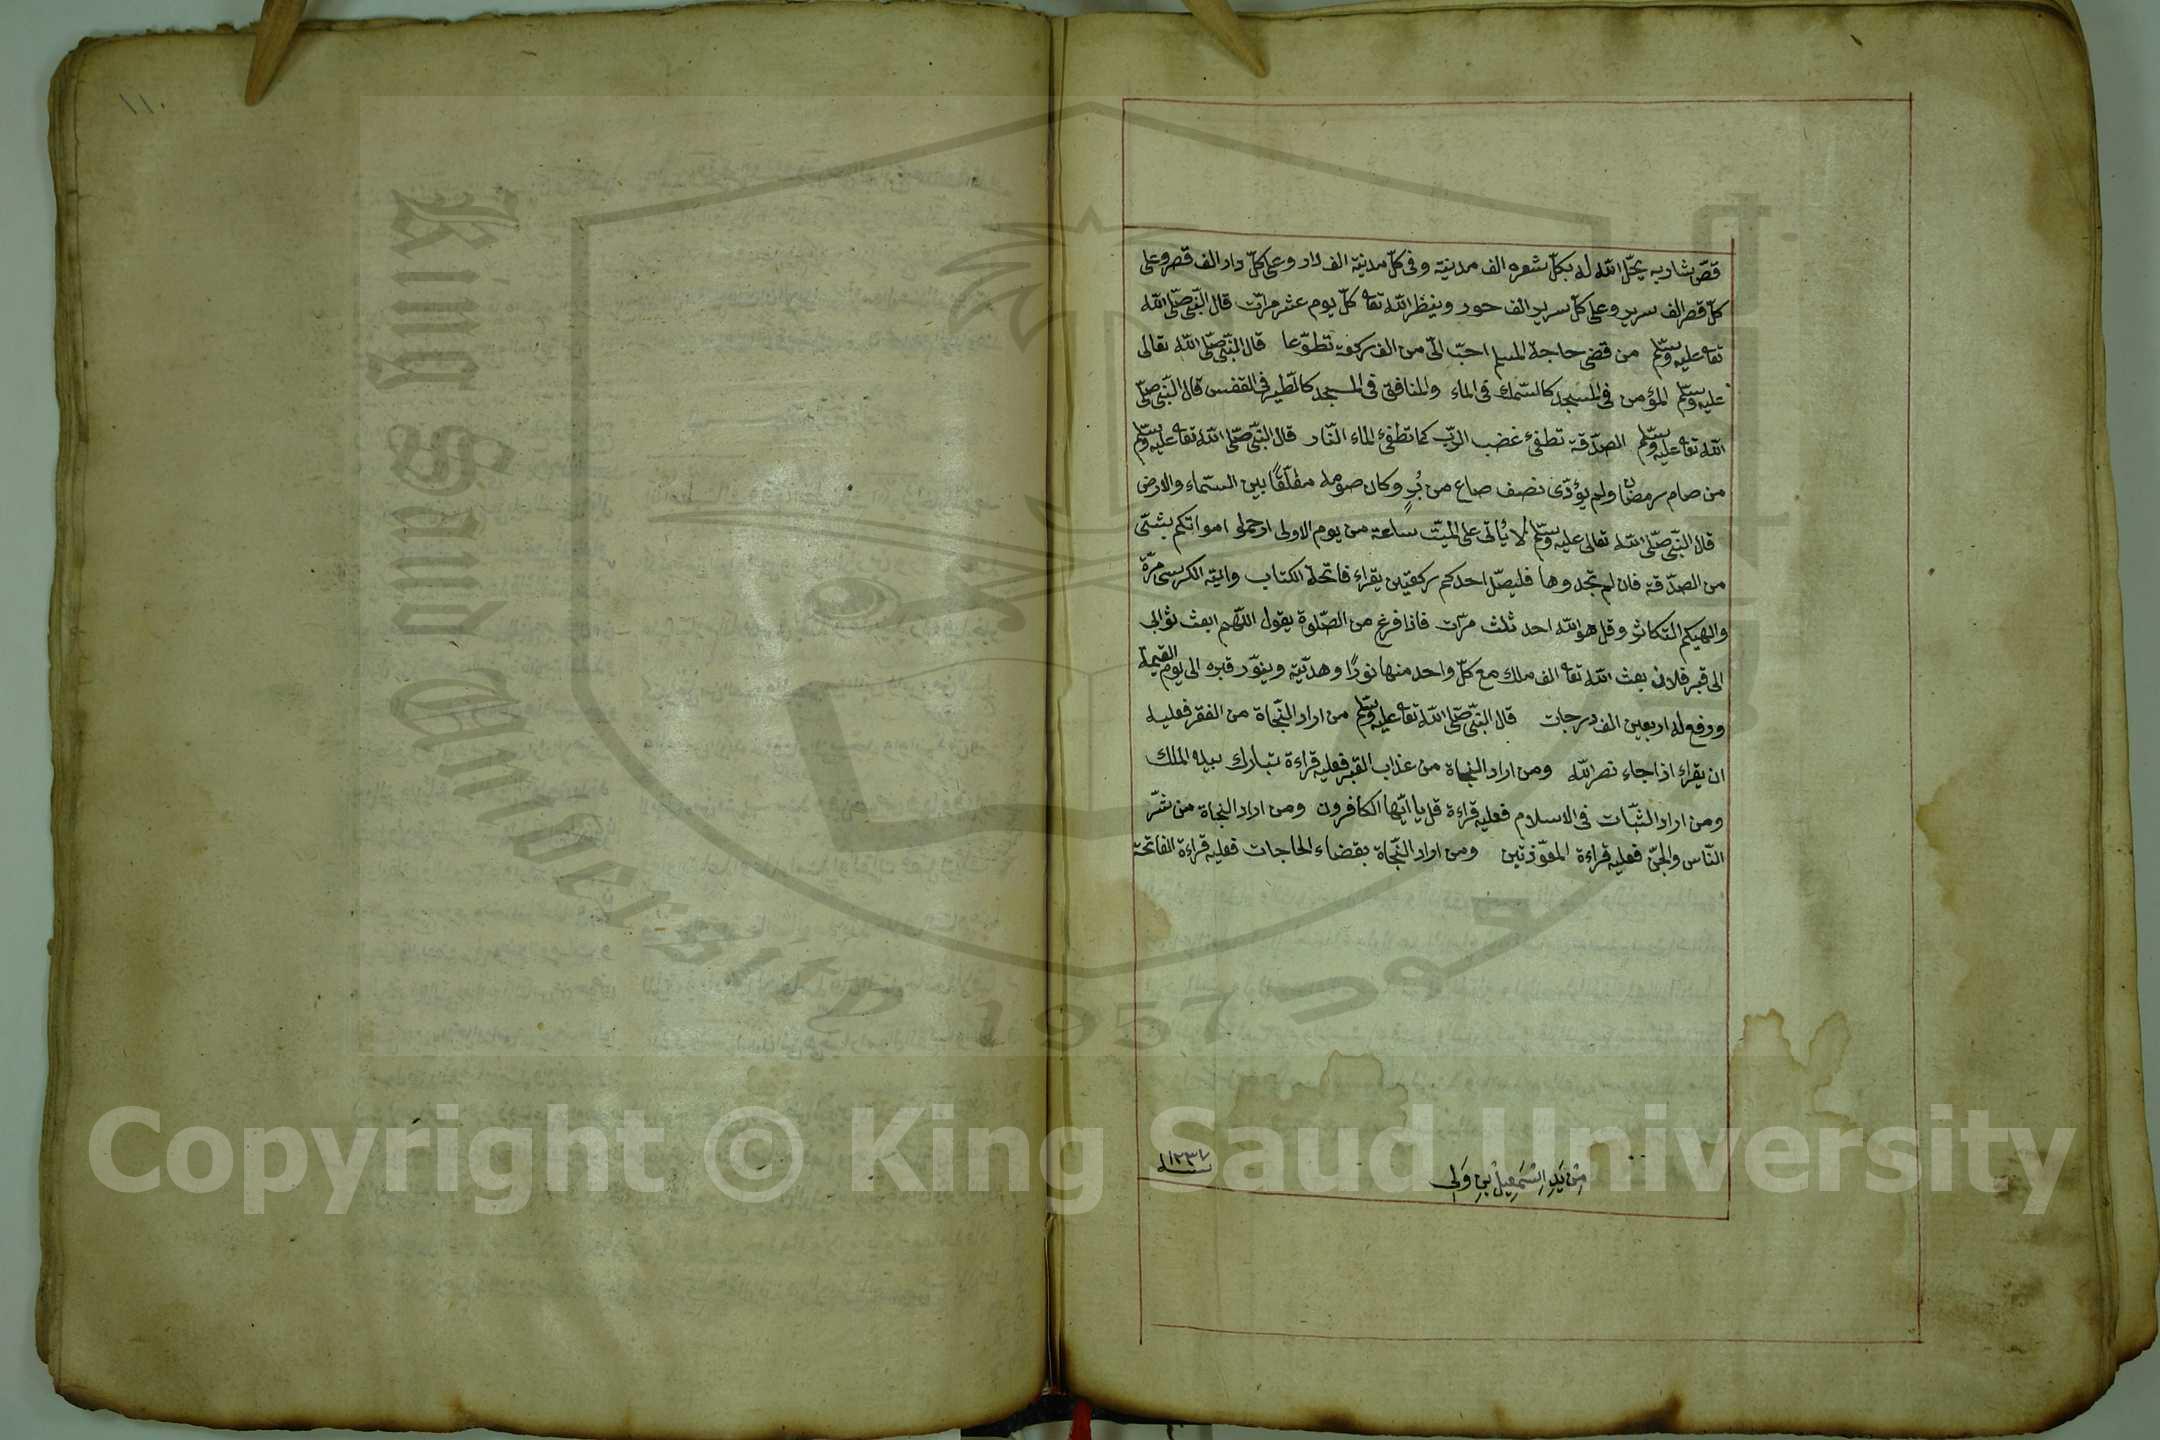 قصّ شاربه يحلّ الله له بكلّ شعره الف مدنية وفى كلّ مدنية الف دار وعلى كلّ دار الف قصر وعلى
كلّ قصر الف سرير وعلى كلّ سرير الف حور وينظر الله تعا كلّ يوم عشر مرّات قال النّبى صلّى الله
تعا عليه وسلّم من قضى حاجة المسلم احبّ الىّ من الف ركعة تطوّعا قال النّبى صلّى الله تعالى
عليه وسلّم المؤمن فى المسجد كالسّمك فى الماء والمنافق فى المسجد كالطير فى القفس قال النّبى صلّى
الله تعا عليه وسلّم الصدّقة تطفئ غضب الربّ كما تطفئ الماء النّار قال النّبى صلّى الله تعا عليه وسلّم
من صام رمضان ولم يؤدّى نصف صاع من بُرٍ وكان صومه معلّقًا بين السّماء والارض
قال النّبى صلّى الله تعالى عليه وسلّم لا يُأتى على الميّت ساعة من يوم الاولى ارحموا امواتكم بشئ
من الصدّقة فان لم تجدوها فليصلّ احدكم ركعتين يقراء فاتحة الكتاب واية الكرسى مرّة
والهيكم التكاثر وقل هو الله احد ثلث مرّات فاذا فرغ من الصّلوة يقول اللّهم ابعث ثوابى
الى قبر فلان بعث الله تعا الف ملك مع كلّ واحد منها نورًا وهديّة وينوّر قبره الى يوم القيمة
ورفع له اربعين الف درجات قال النّبى صلّى الله تعا عليه وسلّم من اراد النّجاة من الفقر فعليه
ان يقراء اذا جاء نصر الله ومن اراد النجاة من عذاب القبر فعليه قراءة تبارك بيده الملك
ومن اراد الثّبات فى الاسلام فعليه قراءة قل يا ايّها الكافرون ومن اراد النجاة من شرّ
النّاس والجنّ فعليه قراءة المعوّذتين ومن اراد النّجاة بقضاء الحاجات فعليه قراءة الفاتحة
مِنْ يَدِ اِسْمَعِيلْ بِنْ وَلِى
سنه ١٢٣٧
١١٠
King Saud University
1957
Copyright © King Saud University